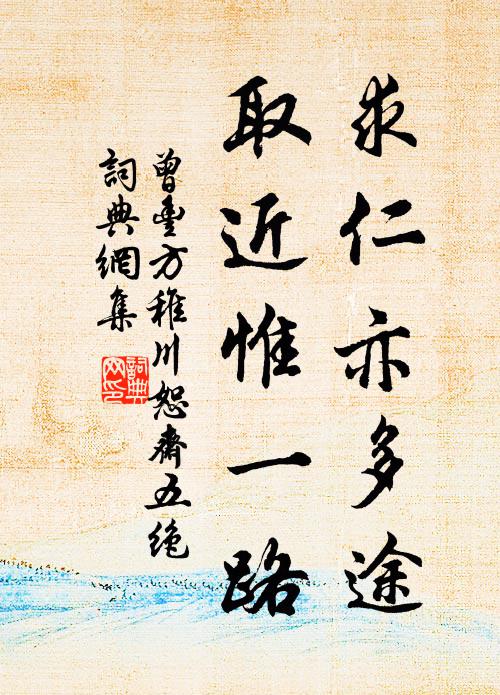 求仁亦多途
取近惟一路
曾豐方稚川恕齋五绝
詞典網集
詞典網印